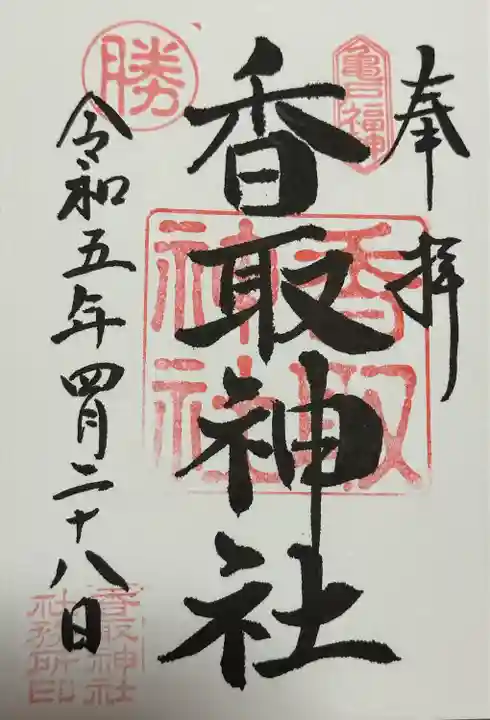 奉拝
亀戸福神
香取神社
香取神社
勝
令和五年四月二十八日
香取神社
社務所印